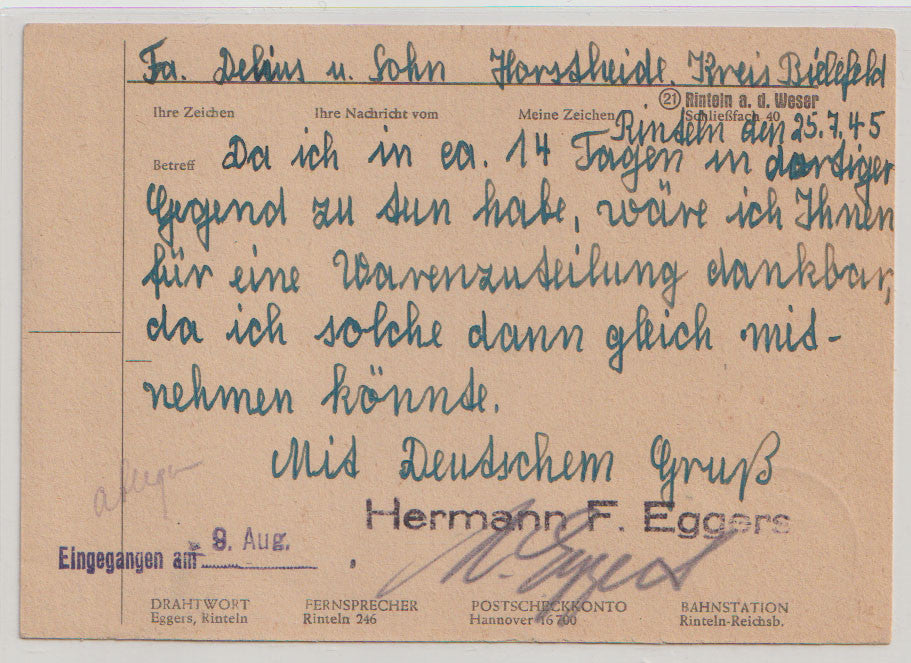 Fa. Delius u. Sohn Horstheide. Kreis Bielefeld
(21) Rinteln a. d. Weser
Ihre Zeichen Ihre Nachricht vom Meine Zeichen Schließfach 40
Rinteln den 25.7.45
Betreff Da ich in ca. 14 Tagen in dortiger
Gegend zu tun habe, wäre ich Ihnen
für eine Warenzuteilung dankbar,
da ich solche dann gleich mit-
nehmen könnte.
Mit Deutschem Gruß
ablegen
Hermann F. Eggers
H. Eggers
Eingegangen am 9. Aug.
DRAHTWORT FERNSPRECHER POSTSCHECKKONTO BAHNSTATION
Eggers, Rinteln Rinteln 246 Hannover 16700 Rinteln-Reichsb.